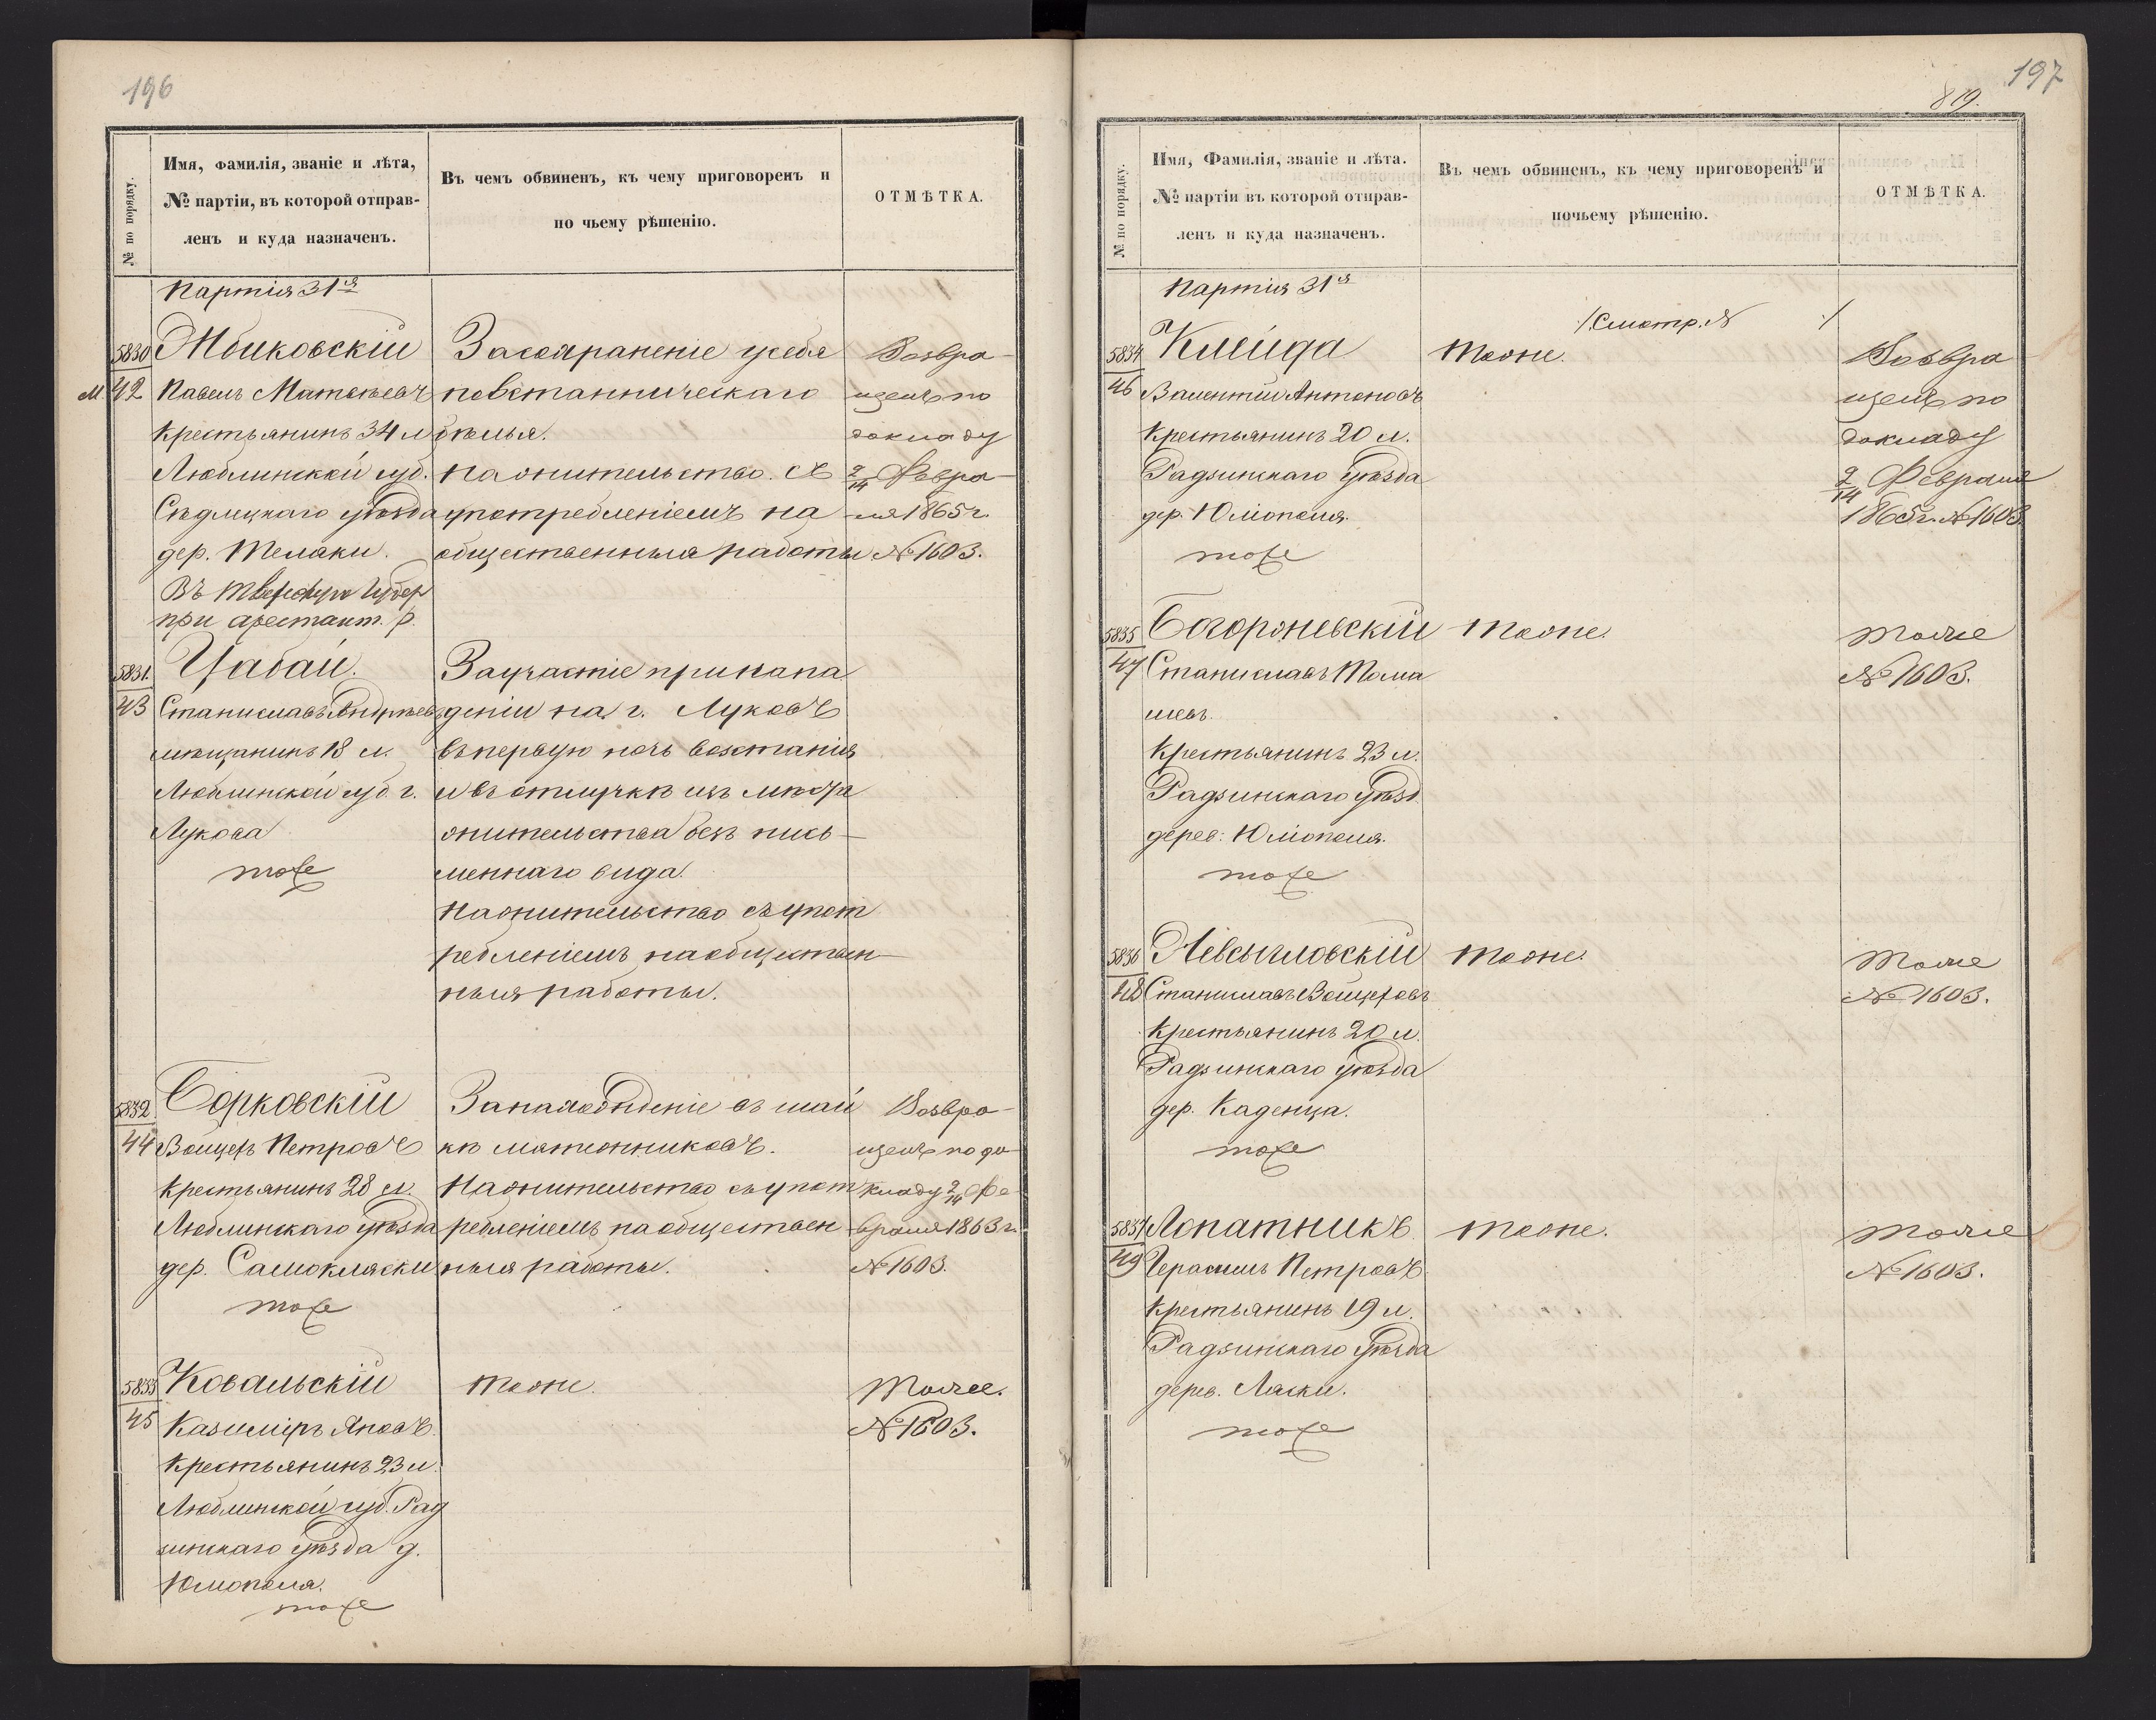 196
№ по порядку.
Имя, фамилія, званіе и лѣта,
№ партіи, въ которой отправ-
ленъ и куда назначенъ.
Въ чемъ обвиненъ, къ чему приговоренъ и
по чьему рѣшенію.
ОТМѢТКА.
Партія 31я
5830
М. 42
Жбиковскій
Павелъ Матвѣевъ
крестьянинъ 34 л
Люблинской губ.
Сѣдлецкаго уѣзда
дер. Телаки.
Въ Тверскую Губер
при арестант. р.
За сохраненіе у себя
повстанническаго
бѣлья.
На жительство съ
употребленіемъ на
общественныя работы
Возвра-
щенъ по
докладу
2/14 Февра-
ля 1865 г.
№ 1603.
5831.
43
Цабай.
Станиславъ Андреевъ
мѣщанинъ 18 л.
Люблинской губ. г.
Лукова
тоже
За участіе при напа
деніи на г. Луковъ
въ первую ночь возстанія
и въ отлучкѣ изъ мѣста
жительства безъ пись-
меннаго вида.
На жительство съ упот
ребленіемъ на обществен-
ныя работы.
5832
44
Борковскій
Войцехъ Петровъ
крестьянинъ 28 л.
Люблинскаго уѣзда
дер. Самокляски
тоже
За нахожденіе въ шай
кѣ мятежниковъ.
На жительство съ упот
ребленіемъ на обществен
ныя работы.
Возвра-
щенъ по до
кладу 2/14 Фе-
враля 1863 г.
№ 1603.
5833
45
Ковальскій
Казиміръ Яновъ
крестьянинъ 23 л.
Люблинской губ. Рад
зинскаго уѣзда д.
Юліополя.
тоже
Тоже.
Тоже.
№ 1603.
197
819.
№ по порядку.
Имя, Фамилія, званіе и лѣта.
№ партіи въ которой отправ-
ленъ и куда назначенъ.
Въ чемъ обвиненъ, къ чему приговоренъ и
почьему рѣшенію.
ОТМѢТКА.
Партія 31я
/Смотр. № /
5834
46
Клейда
Валентій Антоновъ
крестьянинъ 20 л.
Радзинскаго уѣзда
дер. Юліополя.
тоже
Тоже.
Возвра
щенъ по
докладу
2/14 Февраля
1865 г. № 1603.
5835
47
Станиславъ Тома
шевъ.
крестьянинъ 23 л.
Радзинскаго уѣзд.
дерев: Юліополя.
тоже
Тоже.
Тоже
№ 1603.
5836
48
Станиславъ Войцеховъ
крестьянинъ 20 л.
Радзинскаго уѣзда
дер. Каденца.
тоже
Тоже.
Тоже
№ 1603.
5837
49
Лопатникъ
Герасимъ Петровъ
крестьянинъ 19 л.
Радзинскаго уѣзда
дерев. Ляски.
тоже
Тоже.
Тоже
№ 1603.